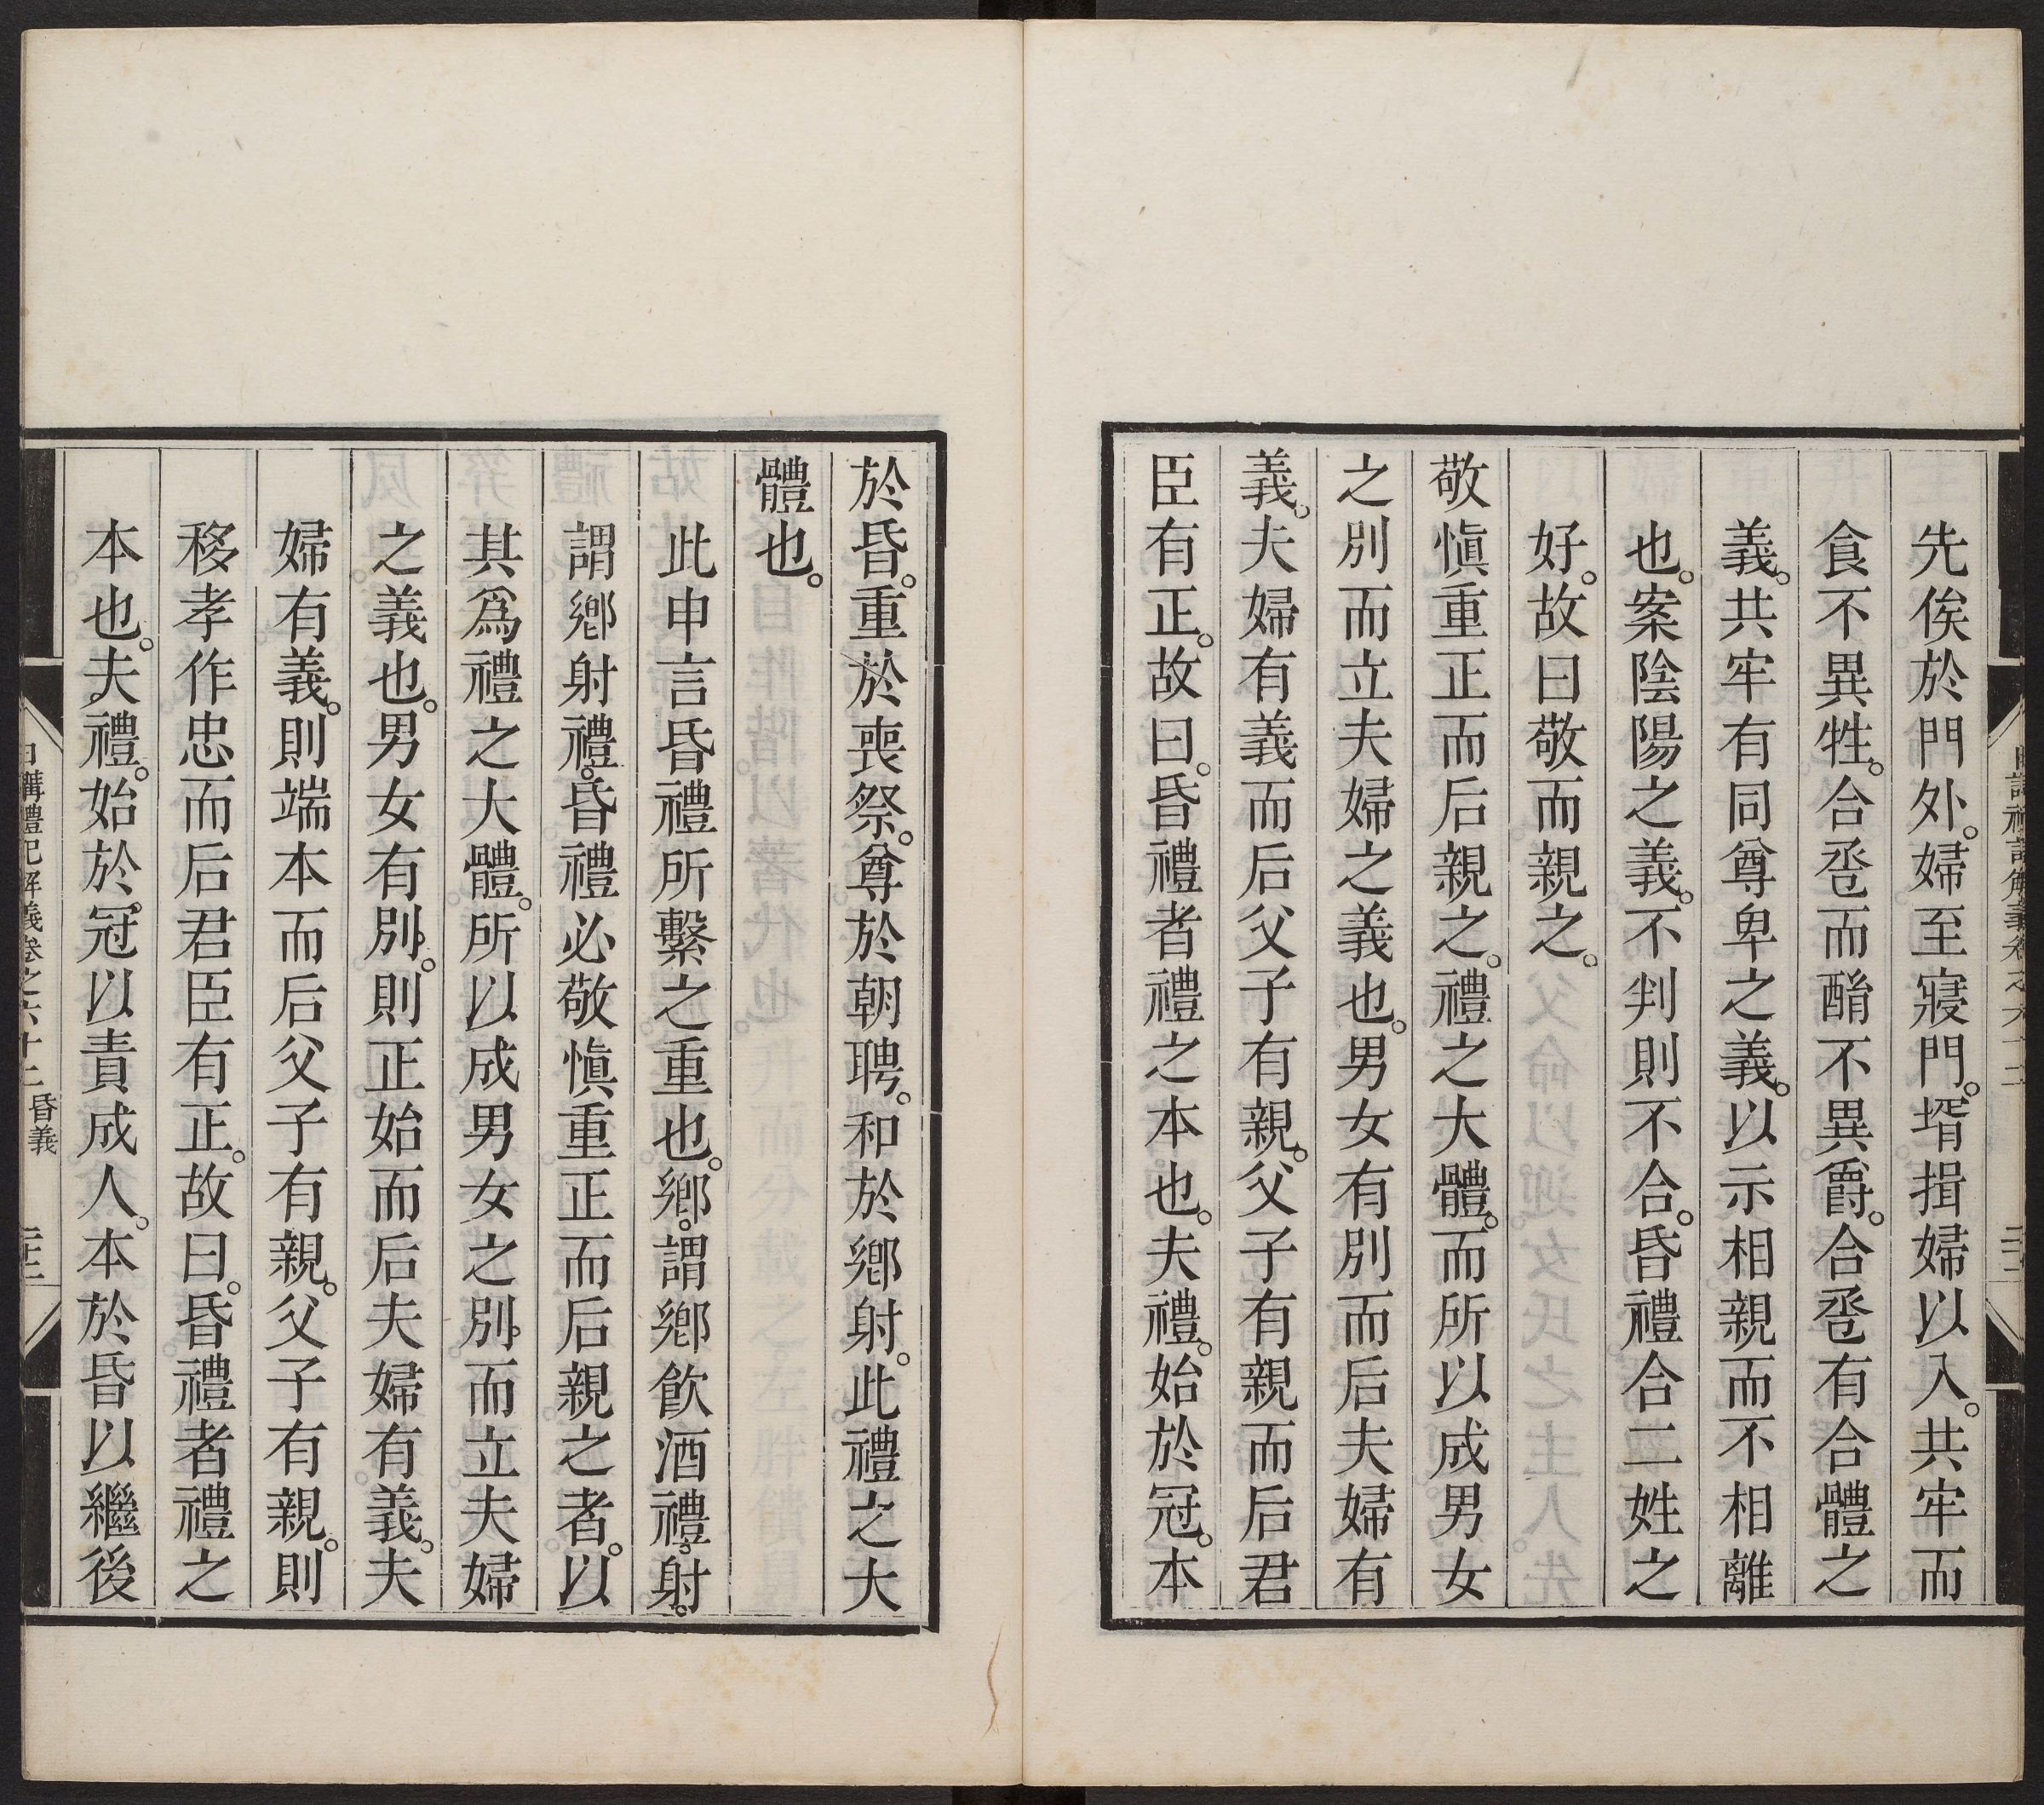 先俟於門外。婦至寢門。壻揖婦以入。共牢而
食不異牲。合卺而酳不異爵。合卺有合體之
義。共牢有同尊卑之義。以示相親而不相離
也。案陰陽之義。不判則不合。昏禮合二姓之
好。故曰敬而親之。
敬愼重正而后親之。禮之大體。而所以成男女
之別而立夫婦之義也。男女有別而后夫婦有
義。夫婦有義而后父子有親。父子有親而后君
臣有正。故曰。昏禮者禮之本也。夫禮。始於冠。本
於昏。重於喪祭。尊於朝聘。和於鄉射。此禮之大
體也。
此申言昏禮所繫之重也。鄉。謂鄉飲酒禮。射。
謂鄉射禮。昏禮必敬愼重正而后親之者。以
其爲禮之大體。所以成男女之別。而立夫婦
之義也。男女有別。則正始而后夫婦有義。夫
婦有義。則端本而后父子有親。父子有親。則
移孝作忠而后君臣有正。故曰。昏禮者禮之
本也。夫禮。始於冠以責成人。本於昏以繼後
日講禮記解義卷之六十二 昏義